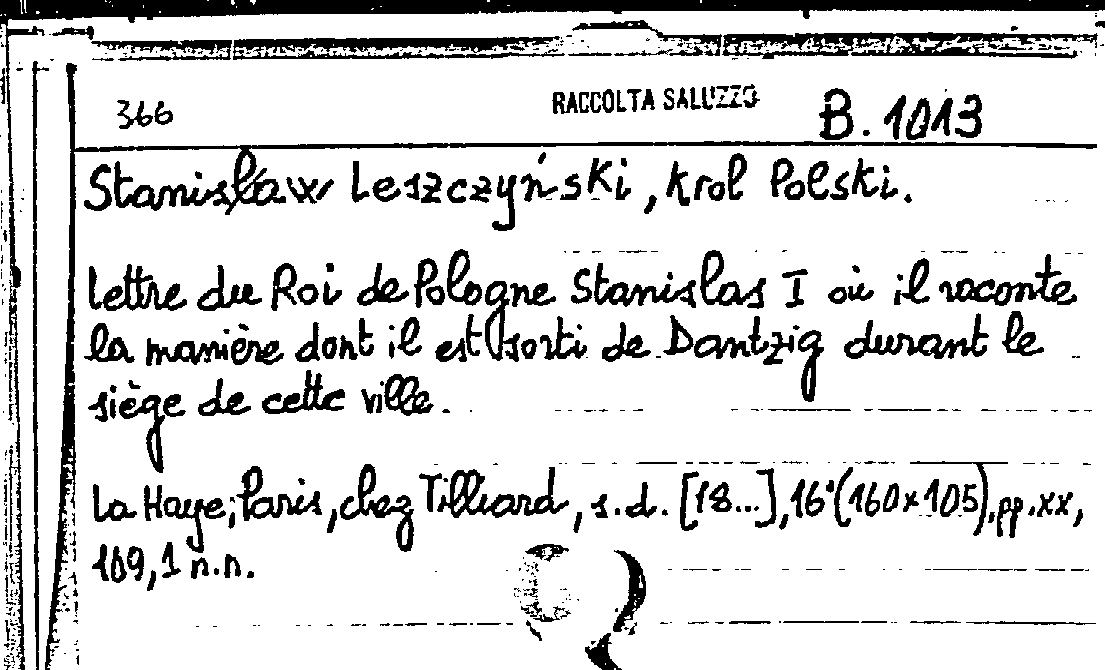 366 RACCOLTA SALUZZO B. 1013
Stanisław Leszczyński, Krol Polski.
Lettre du Roi de Pologne Stanislas I où il raconte
la manière dont il est sorti de Dantzig durant le
siège de cette ville.
La Haye; Paris, chez Tilliard, s.d. [18...], 16° (160x105), pp. xx,
109, 1 n.n.